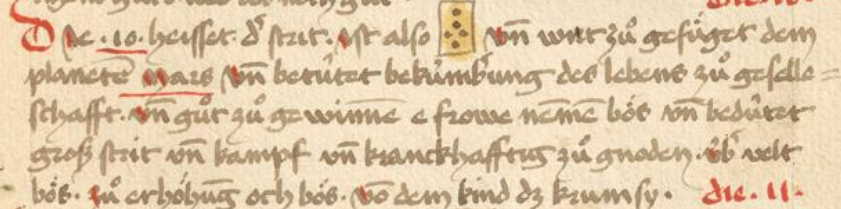 die. 10.
Die .10. heisset. dʼ strit. ist also vn̄ wirt zuͦ gefuͤget dem
planetē Mars vn̄ betuͤtet bekuͤmbʼung des lebens zuͦ geselle=
schafft. vn̄ guͦt zuͦ gewinnē e frowe nēmē boͤs vn̄ beduͤtet
groß strit vn̄ kampf vn̄ kranckhafftig zuͦ gnoden. vͤbʼ velt
boͤs. zuͦ erhoͤhūg och boͤs. vō dem kind dz krumsy. die .11.